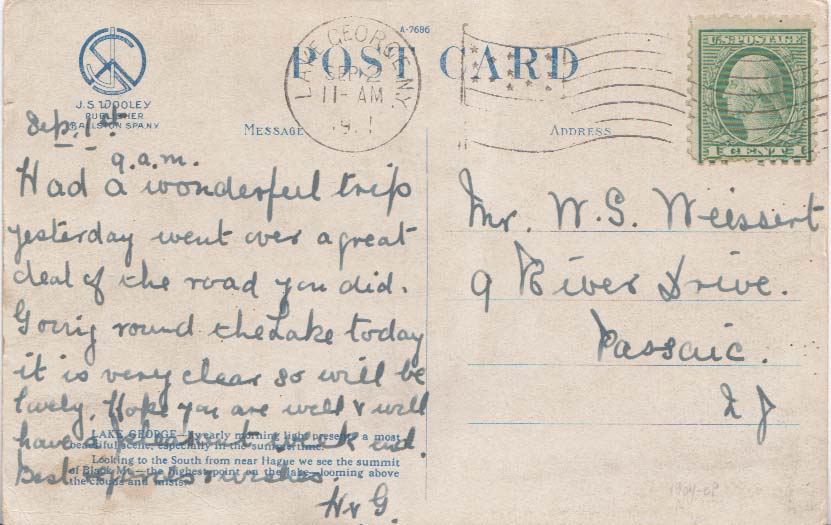 A-7686
POST CARD
J.S. WOOLEY
PUBLISHER
BALLSTON SPA.N.Y.
LAKE GEORGE N.Y.
SEP 2
11-AM
U.S. POSTAGE
1 CENT 1
MESSAGE
ADDRESS
Sep. 1st
9.a.m.
Had a wonderful trip
yesterday went over a great
deal of the road you did.
Going round the Lake today
it is very clear so will be
lovely. Hope you are well & will
have a pleasant week end.
Best wishes.
H & G.
LAKE GEORGE—Early morning light presents a most
beautiful scene, especially in the summertime.
Looking to the South from near Hague we see the summit
of Black Mt.—the highest point on the lake—looming above
the clouds and mists.
Mr. W. S. Weissert
9 River Drive.
Passaic.
N J